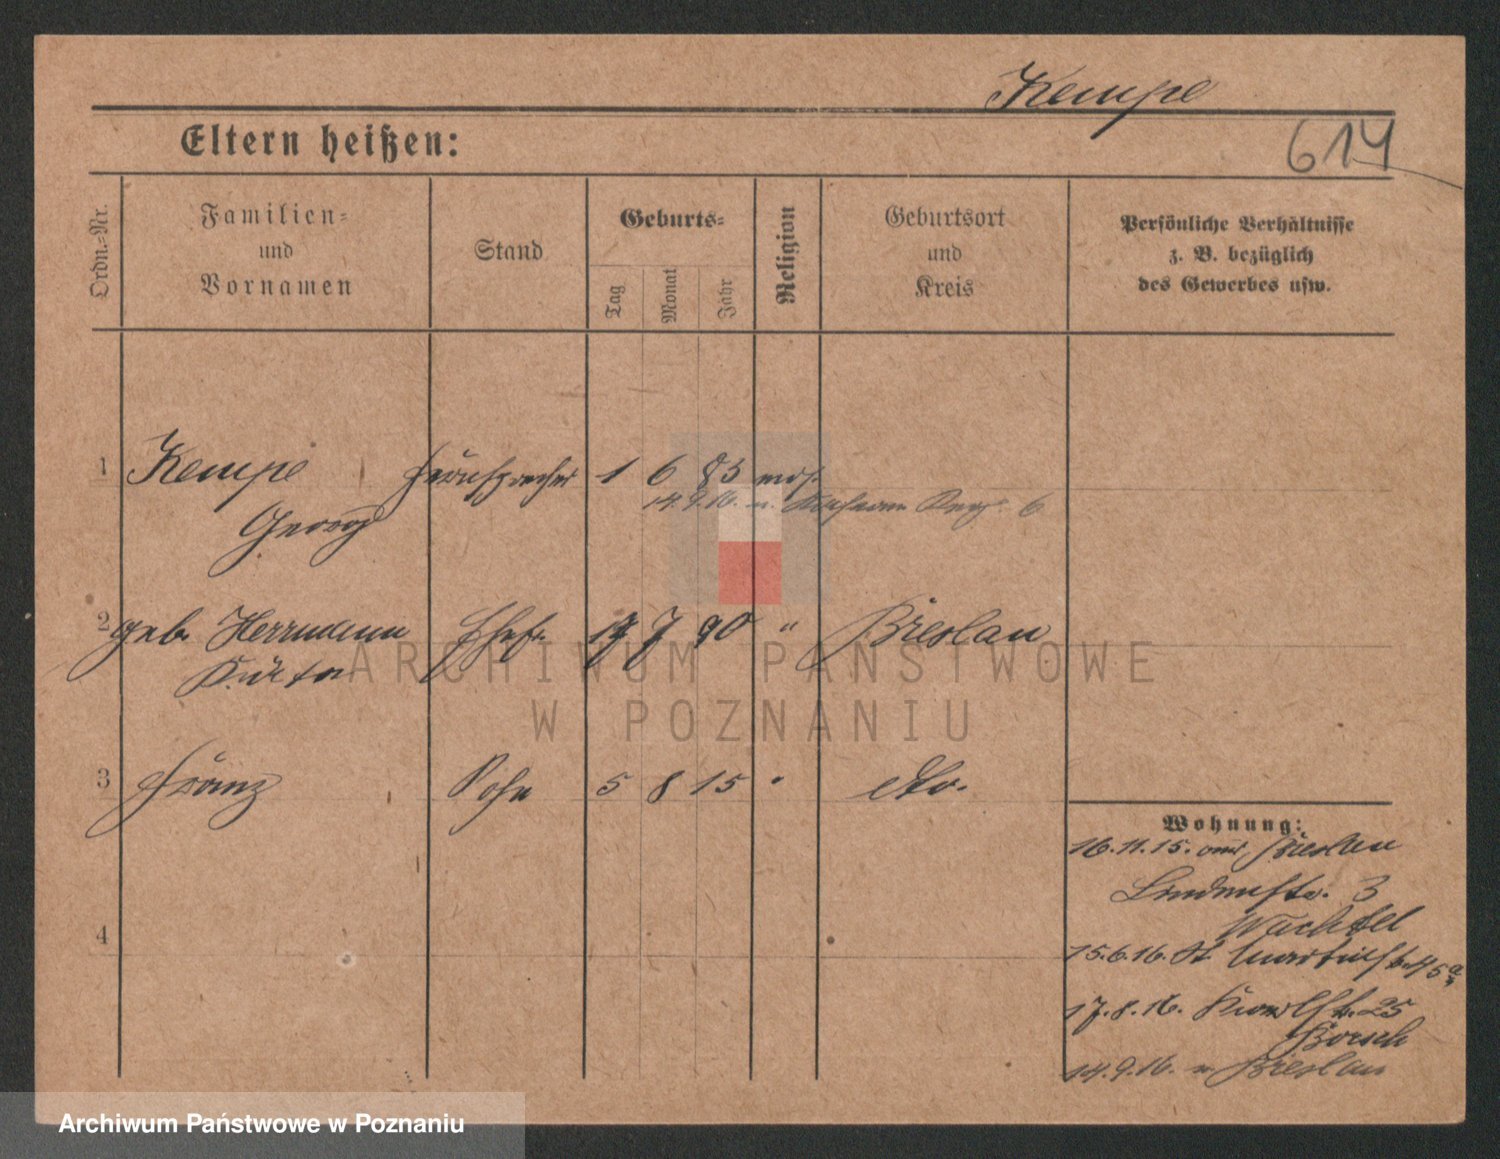 Kempe
Eltern heißen:
614
Ordn.-Nr.
Familien-
und
Vornamen
Stand
Geburts-
Tag
Monat
Jahr
Religion
Geburtsort
und
Kreis
Persönliche Verhältnisse
z. B. bezüglich
des Gewerbes usw.
1 Kempe 1 6 83 mos.
14.9.16. n. 6
Georg
2 geb. Herrmann Ehefr. 17 7 90 " Breslau
3 Franz Sohn 5 8 15 " dto.
4
Wohnung:
16.11.15. aus Breslau
Lindenstr. 3
Wachtel
15.6.16. St. Martinstr. 45a
17.8.16. 25
14.9.16. n. Breslau
ARCHIWUM PAŃSTWOWE
W POZNANIU
Archiwum Państwowe w Poznaniu